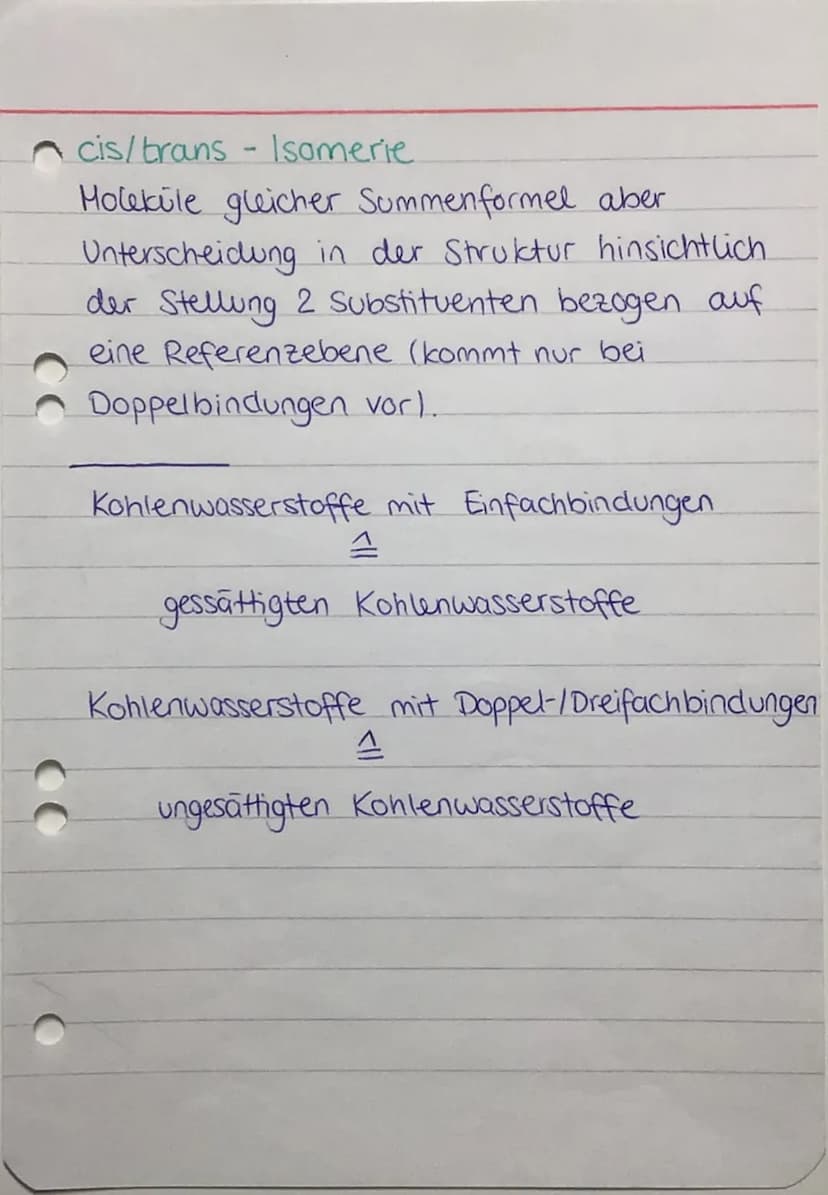 cis/trans - Isomerie
Moleküle gleicher Summenformel aber
Unterscheidung in der Struktur hinsichtlich
der Stellung 2 Substituenten bezogen auf
eine Referenzebene (kommt nur bei
Doppelbindungen vor).
Kohlenwasserstoffe mit Einfachbindungen
≙
gessättigten Kohlenwasserstoffe
Kohlenwasserstoffe mit Doppel-/Dreifachbindungen
≙
ungesättigten Kohlenwasserstoffe